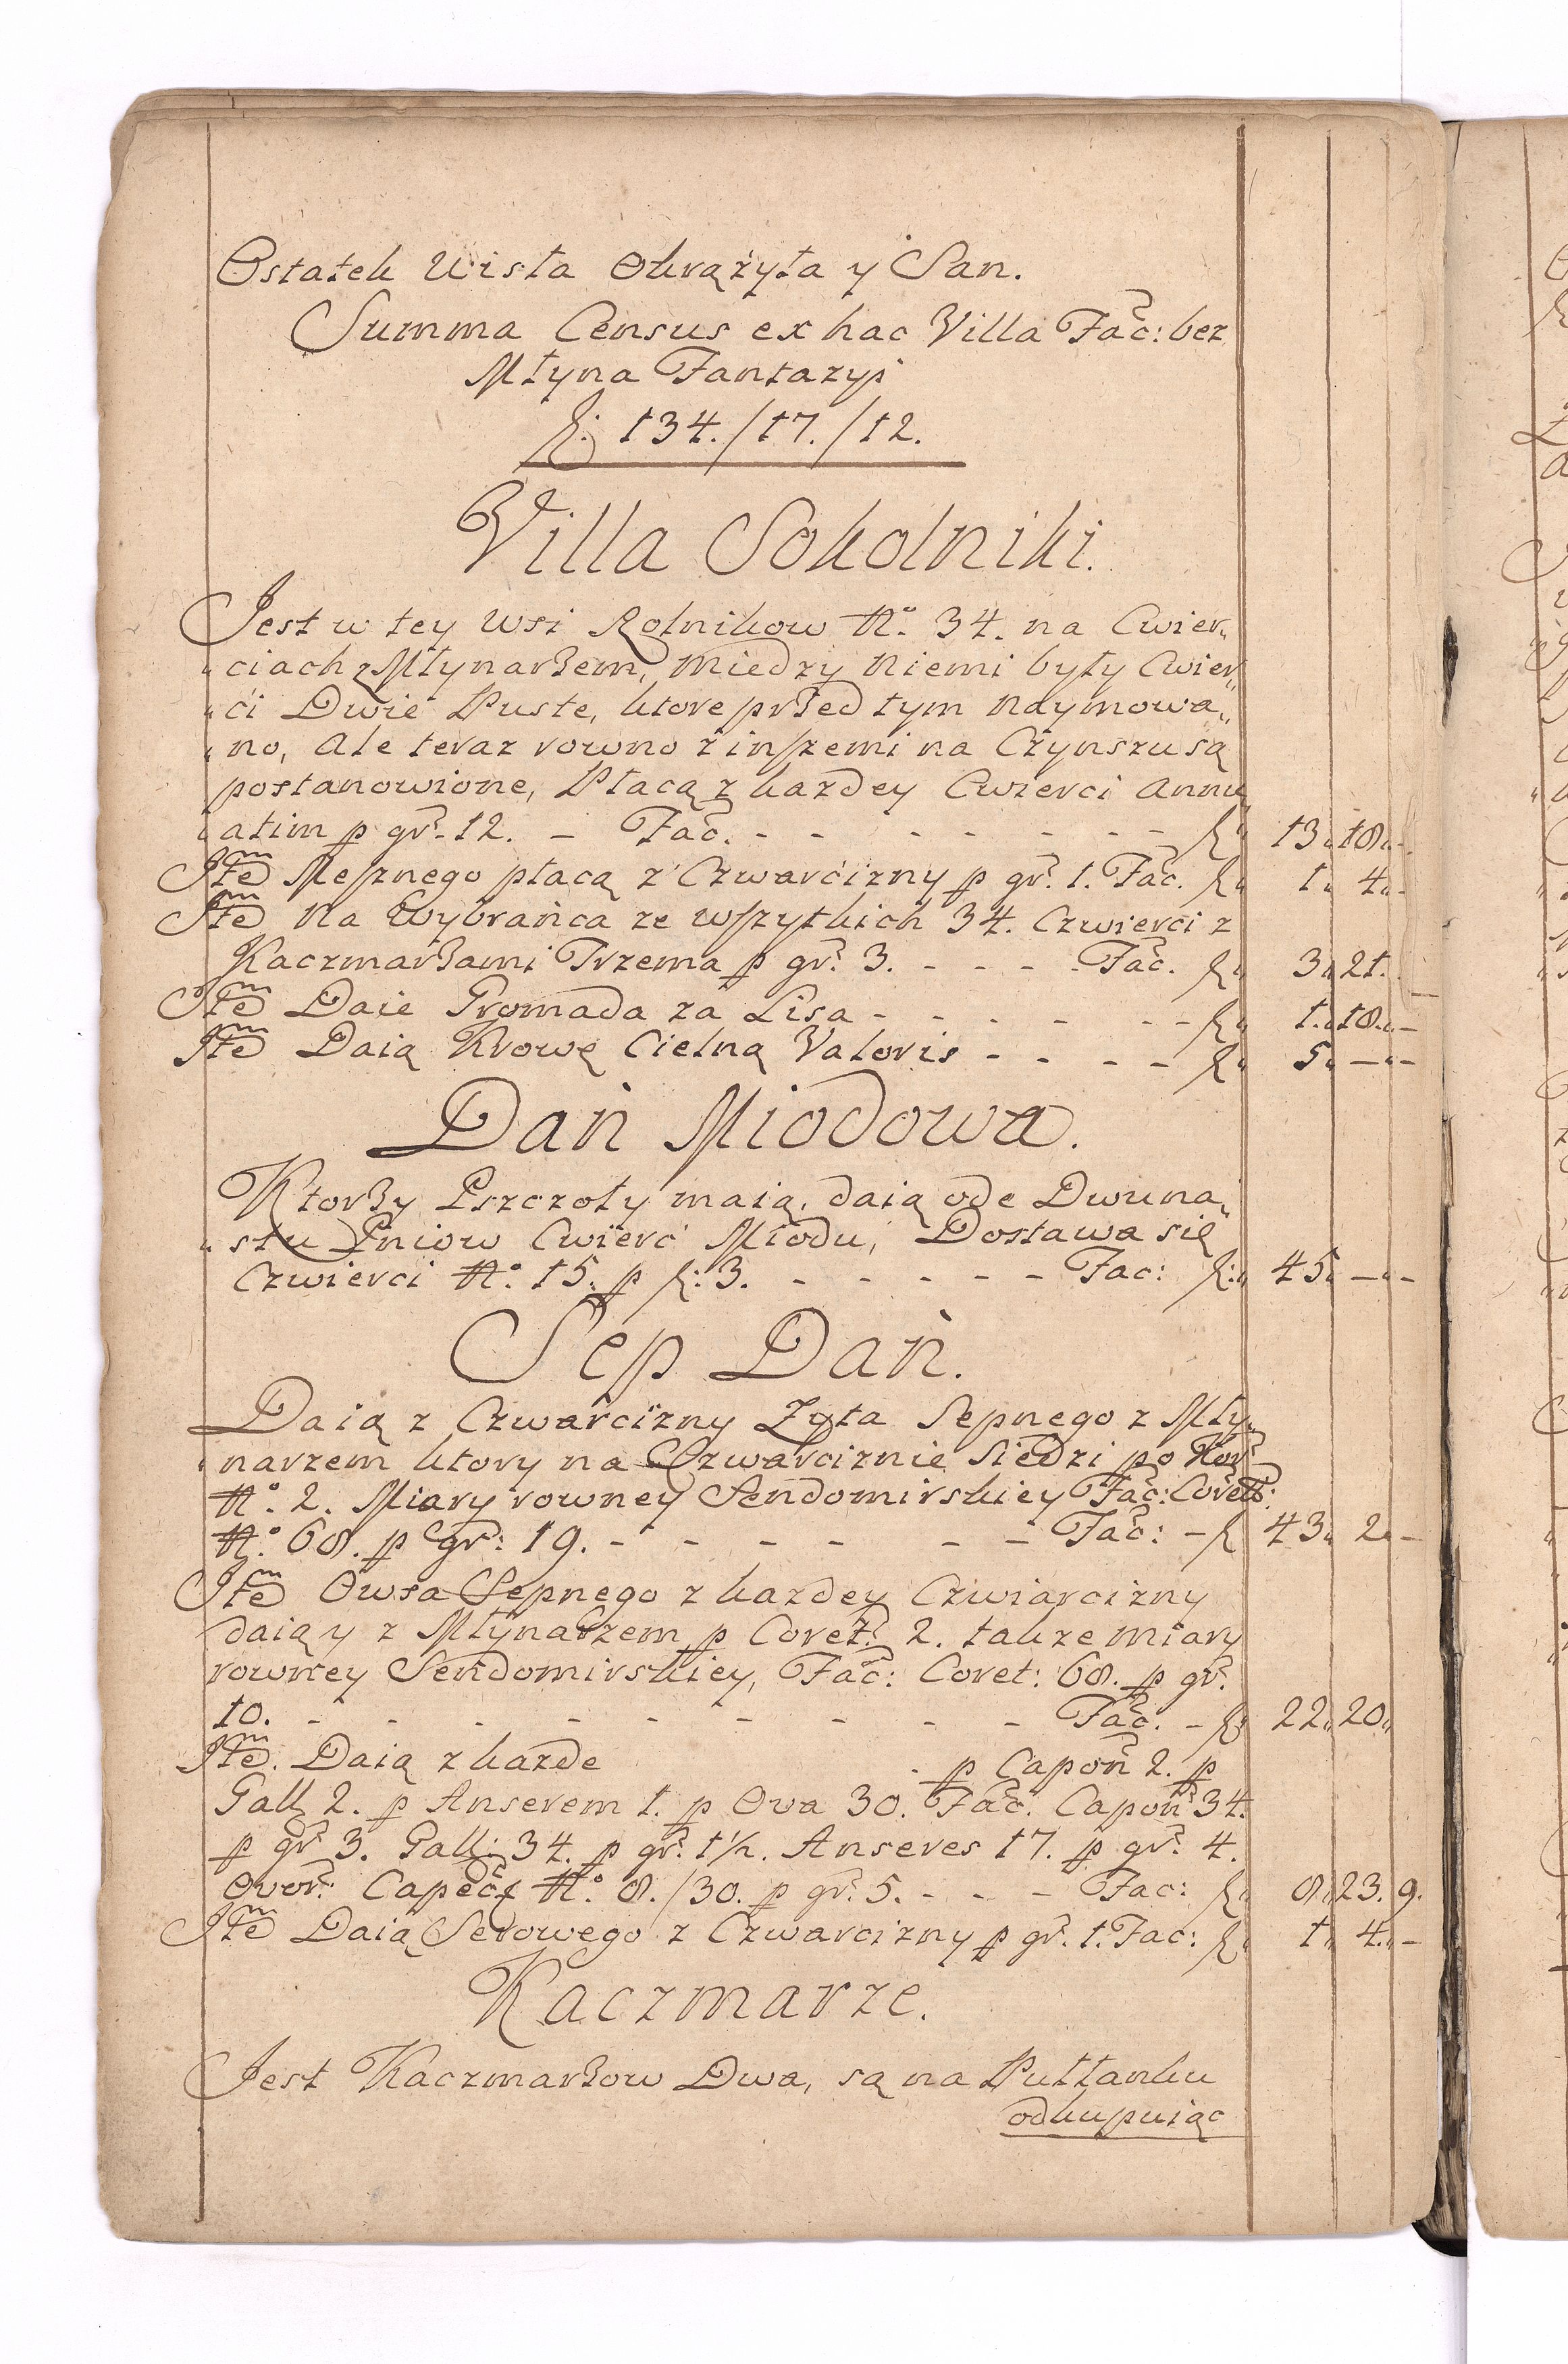 Ostatek Wisła Okrążyła y San.
Summa Census ex hac Villa Fac: bez
Młyna Fantazyi
f: 134./17./12.
Villa Sokolniki.
Jest w tey Wsi Rolnikow No. 34. na Cwier„
„ciach z Młynarzem, miedzy niemi były Cwier„
„ci Dwie Puste, ktore przed tym naymowa„
„no, Ale teraz rowno z inszemi na Czynszu są
postanowione, Płacą z każdey Cwierci Annu
„atim p gr. 12. - Fac. - - - - - - - f„ 13„ 18„ -
Itẽ Mesznego płacą z Czwarcizny p gr. 1. Fac. f„ 1„ 4„ -
Itẽ Na Wybrańca ze wszytkich 34. Czwierci z
Kaczmarzami Trzema p gr. 3. - - - - Fac. f„ 3„ 21.
Itẽ Daie Gromada za Lisa - - - - - - f„ 1„ 18„ -
Itẽ Daią Krowę Cielną Valoris - - - - f„ 5„ -„ -
Dań Miodowa.
Ktorzy Pszczoły maią, daią ode Dwuna„
„stu Pniow Cwierć Miodu, Dostawa się
Czwierci No. 15. p f: 3. - - - - - Fac: f:„ 45„ -„ -
Sep Dań.
Daią z Czwarcizny Zyta Sepnego z Mły„
„narzem ktory na Czwarciznie Siedzi po Kor
No. 2. Miary rowney Sendomirskiey Fac: Coret:
No. 68. p gr: 19. - - - - - - Fac: - f 43„ 2„ -
Itẽ Owsa Sepnego z każdey Cziwiarcizny
daią y z Młynarzem p Coret. 2. także miary
rowney Sendomirskiey, Fac: Coret: 68. p gr.
10. - - - - - - - - - Fac. - f„ 22„ 20„
Itẽ. Daią z każde . p Capon 2. p
Gall 2. p Anserem 1. p Ova 30. Fac. Capon 34.
p gr. 3. Gall: 34. p gr. 1½. Anseres 17. p gr. 4.
Ovor: Capec No. 8./30. p gr. 5. - - - Fac: f„ 8„ 23. 9.
Itẽ Daią Serowego z Czwarcizny p gr. 1. Fac: f„ 1„ 4„ -
Kaczmarze.
Jest Kaczmarzow Dwa, są na Pułłanku
odkupuiąc